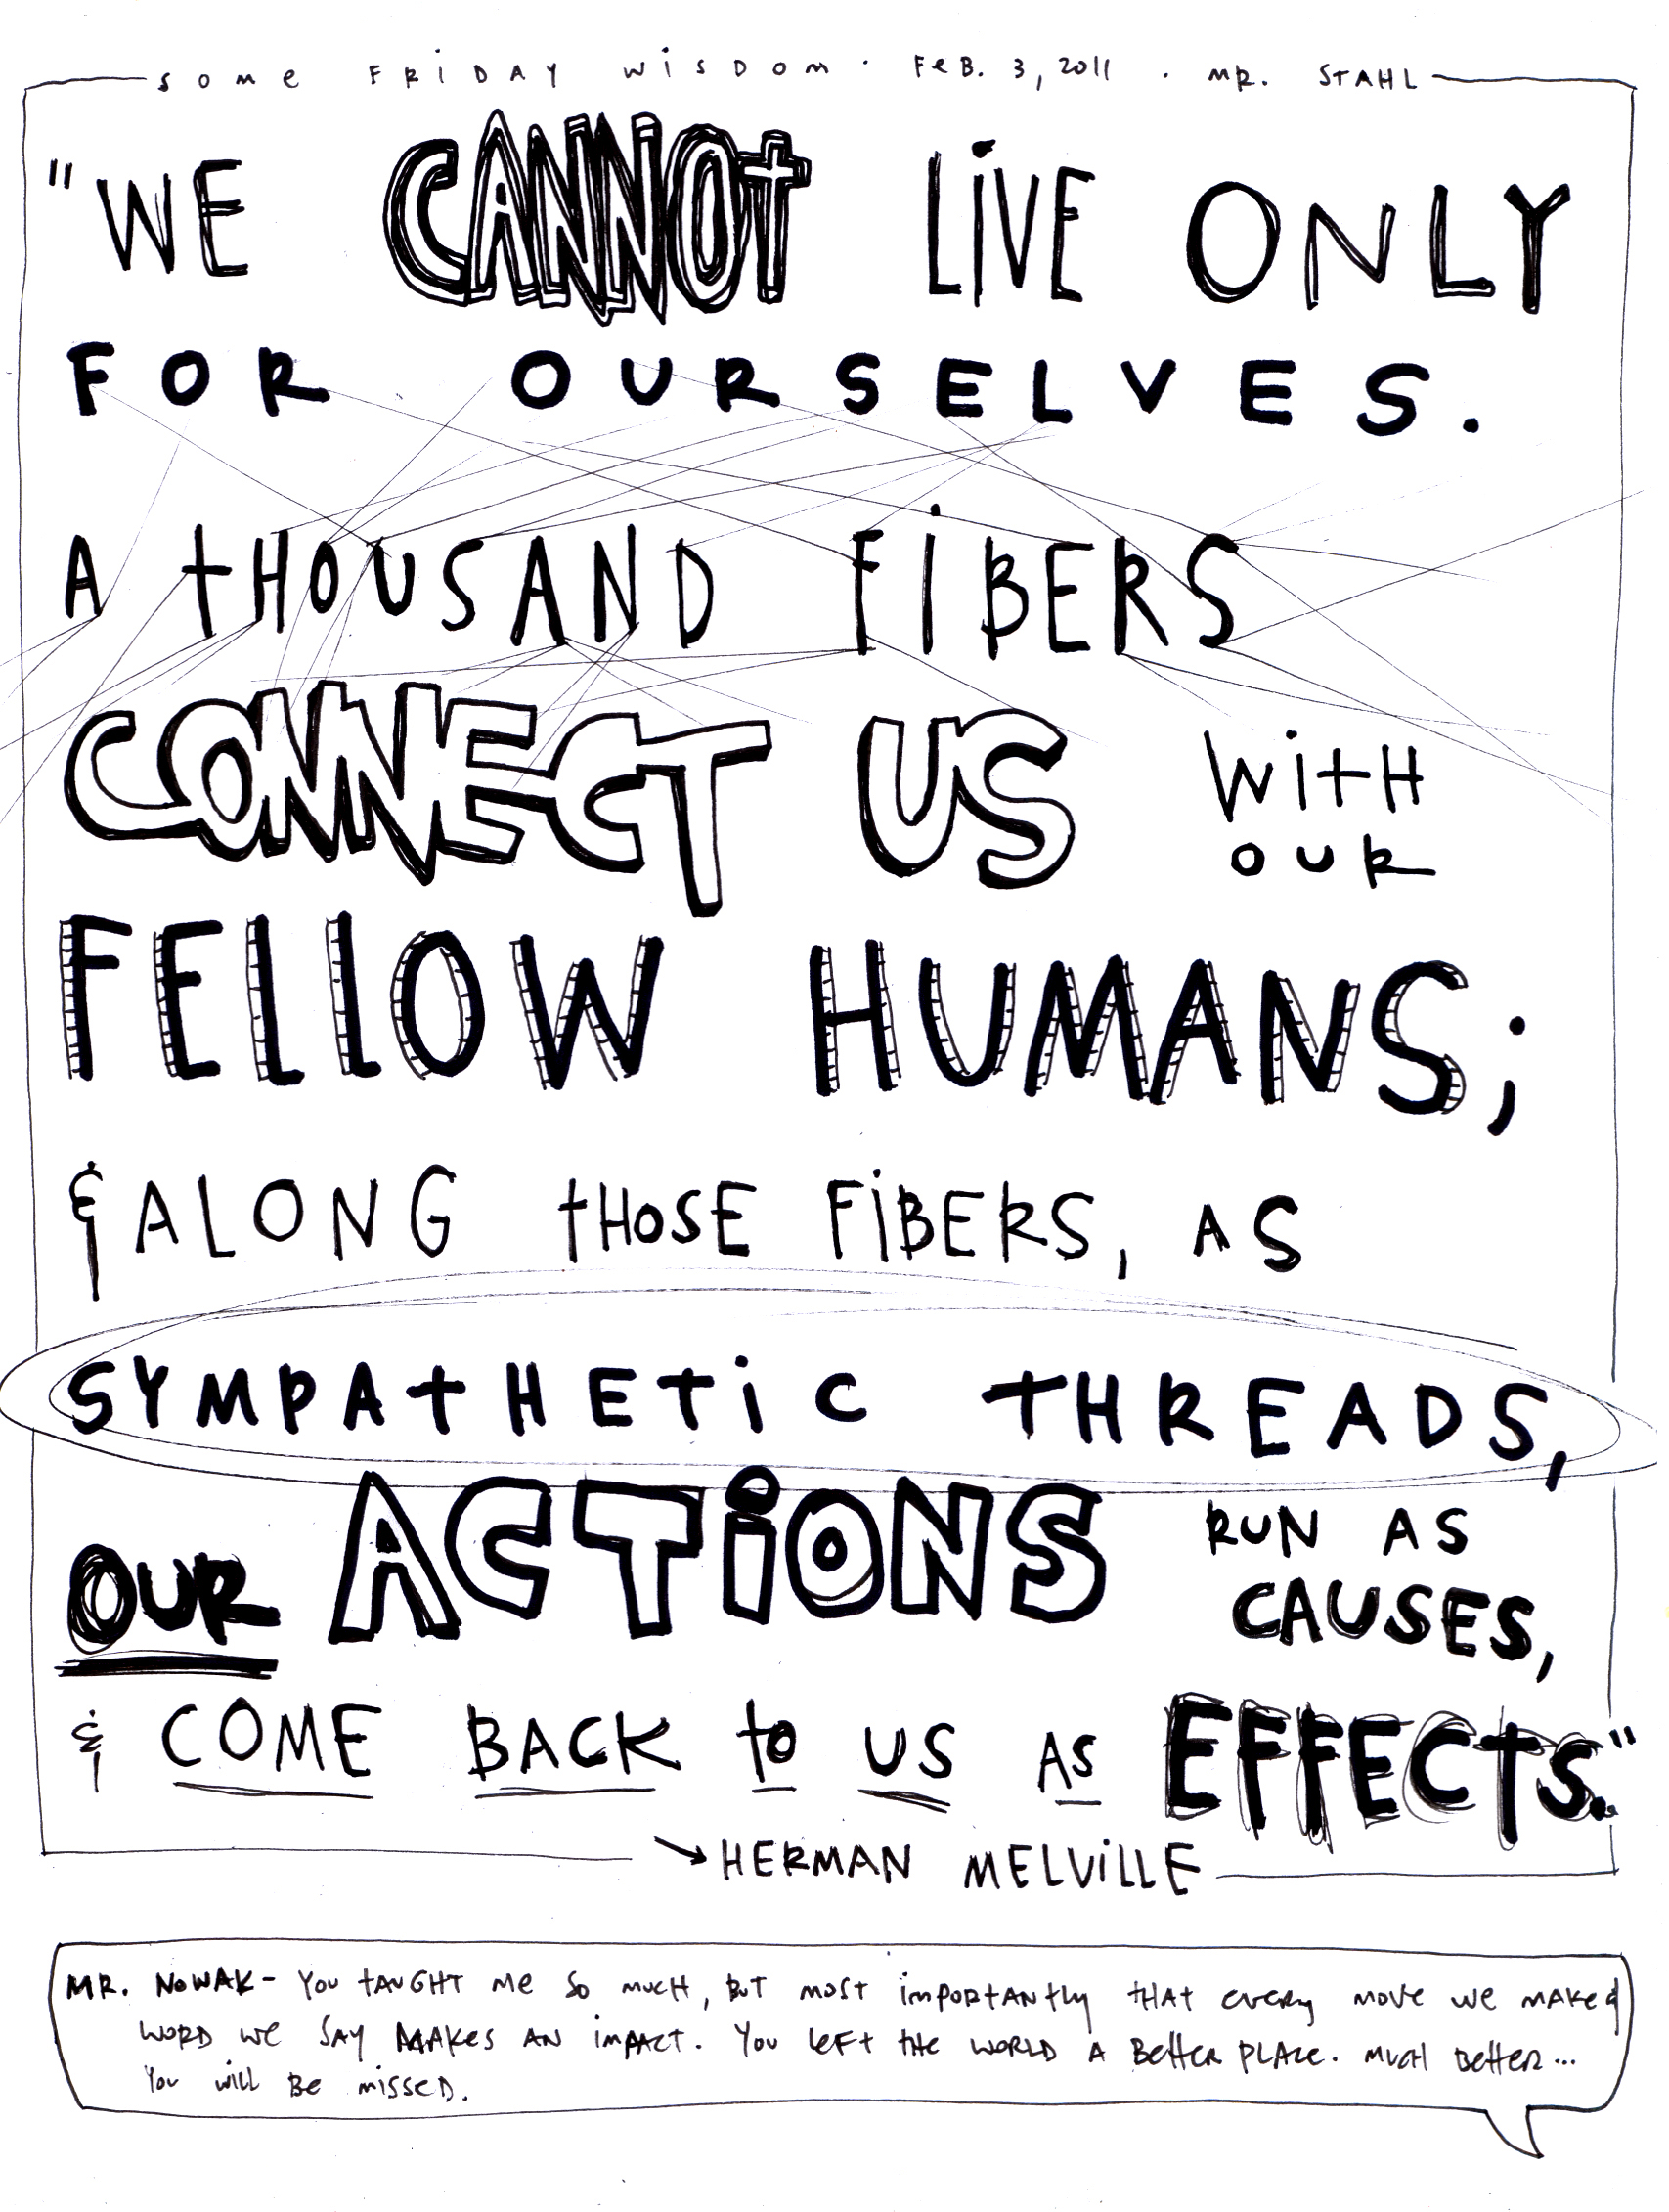 some FRiDAY wisDom · FeB. 3, 2011 · mR. STAHL
"WE CANNOt LiVE ONLY
FOR OURSELVES.
A tHOUSAND FiBERS
CONNECT US WitH
OUR
FELLOW HUMANS;
& ALONG tHOSE FiBERS, AS
SYMPAtHEtiC tHREADS,
OUR ACTiONS RUN AS
CAUSES,
& COME BACK to US AS EFFECTS."
→HERMAN MELViLLE
MR. NOWAK- You tAUGHT me so much, BuT most impoRtAntly tHAt eveRy move we mAke &
WORD we SAY MAkes AN impAct. You leFt the WORLD A BetteR PLAce. Much BetteR...
You will Be misseD.